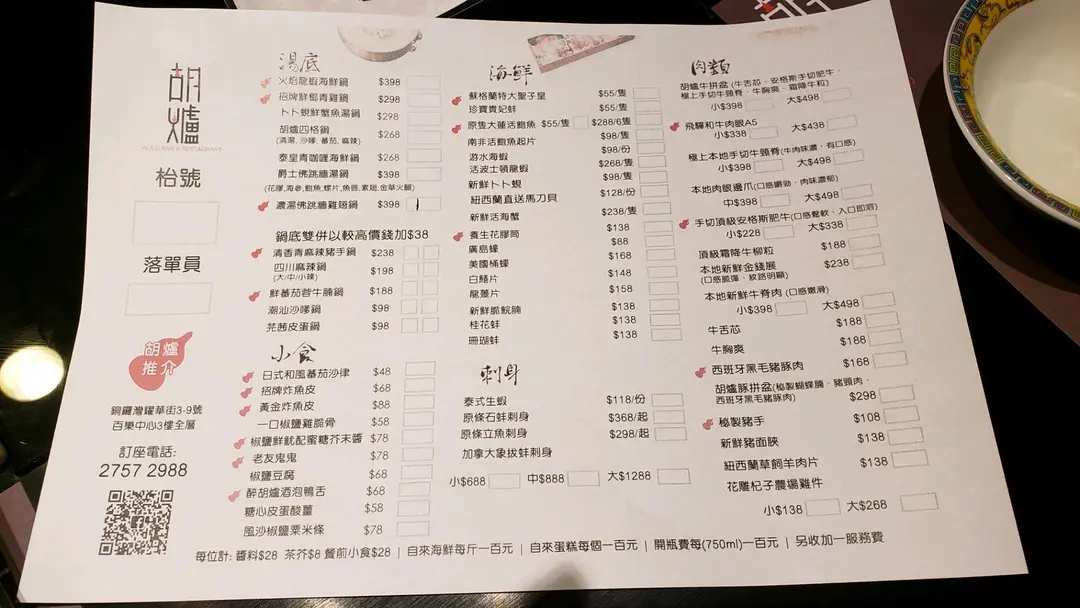 胡爐
WULU BAR & RESTAURANT
枱號
落單員
胡爐
推介
銅鑼灣耀華街3-9號
百樂中心3樓全層
訂座電話:
2757 2988
湯底
火焰龍蝦海鮮鍋 $398
招牌鮮椰青雞鍋 $298
卜卜蜆鮮蟹魚湯鍋 $298
胡爐四格鍋 $268
(清湯, 沙嗲, 蕃茄, 麻辣)
泰皇青咖喱海鮮鍋 $268
爵士佛跳牆湯鍋 $398
(花膠,海參,鮑魚,螺片,魚唇,素翅,金華火腿)
濃湯佛跳牆雞翅鍋 $398
鍋底雙併以較高價錢加$38
清香青麻辣豬手鍋 $238
四川麻辣鍋 $198
(大/中/小辣)
鮮蕃茄蓉牛腩鍋 $188
潮汕沙嗲鍋 $98
芫茜皮蛋鍋 $98
小食
日式和風蕃茄沙律 $48
招牌炸魚皮 $68
黃金炸魚皮 $88
一口椒鹽雞脆骨 $58
椒鹽鮮魷配蜜糖芥末醬 $78
老友鬼鬼 $78
椒鹽豆腐 $68
醉胡爐酒泡鴨舌 $68
糖心皮蛋酸薑 $58
風沙椒鹽粟米條 $78
海鮮
蘇格蘭特大聖子皇 $55/隻
珍寶貴妃蚌 $55/隻
原隻大蓮活鮑魚 $55/隻 $288/6隻
南非活鮑魚起片 $98/隻
游水海蝦 $98/份
活波士頓龍蝦 $268/隻
新鮮卜卜蜆 $98/隻
紐西蘭直送馬刀貝 $128/份
新鮮活海蟹 $238/隻
養生花膠筒 $138
廣島蠔 $88
美國桶蠔 $168
白鱔片 $148
龍躉片 $158
新鮮脆鯇腩 $138
桂花蚌 $138
珊瑚蚌 $138
刺身
泰式生蝦 $118/份
原條石蚌刺身 $368/起
原條立魚刺身 $298/起
加拿大象拔蚌刺身
小$688 中$888 大$1288
肉類
胡爐牛拼盆(牛舌芯、安格斯手切肥牛、
極上手切牛頸脊、牛胸爽、霜降牛粒)
小$398 大$498
飛驒和牛肉眼A5
小$338 大$438
極上本地手切牛頸脊(牛肉味濃、有口感)
小$398 大$498
本地肉眼邊爪(口感嚼勁、肉味濃郁)
中$398 大$498
手切頂級安格斯肥牛(口感鬆軟、入口即溶)
小$228 大$338
頂級霜降牛柳粒 $188
本地新鮮金錢展 $238
(口感脆彈、紋路明顯)
本地新鮮牛脊肉 (口感嫩滑)
小$398 大$498
牛舌芯 $188
牛胸爽 $188
西班牙黑毛豬豚肉 $168
胡爐豚拼盆(秘製蝴蝶腩、豬頸肉、
西班牙黑毛豬豚肉) $298
秘製豬手 $108
新鮮豬面脥 $138
紐西蘭草飼羊肉片 $138
花雕杞子農場雞件
小$138 大$268
每位計: 醬料$28 茶芥$8 餐前小食$28 | 自來海鮮每斤一百元 | 自來蛋糕每個一百元 | 開瓶費每(750ml)一百元 | 另收加一服務費